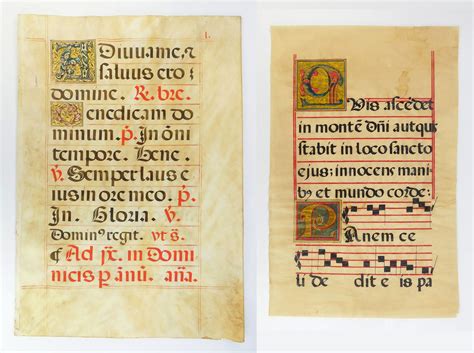 1.
Adiuuame, ⁊
saluus ero:
domine. R. bre.
Benedicam do
minum: p̄. In oñi
tempore. Bene.
V̄. Semper laus e
ius in ore meo. p̄.
In. Gloria. V̄.
Dominꝰ regit. vt s̄.
¶ Ad jx̄. in Domi
nicis p̱ ānū. aña.
Qvis ascēdet
in montē Dñi autquꝭ
stabit in loco sancto
ejus; innocens mani
bꝰ et mundo corde:
Panem ce
li de dit e is pa